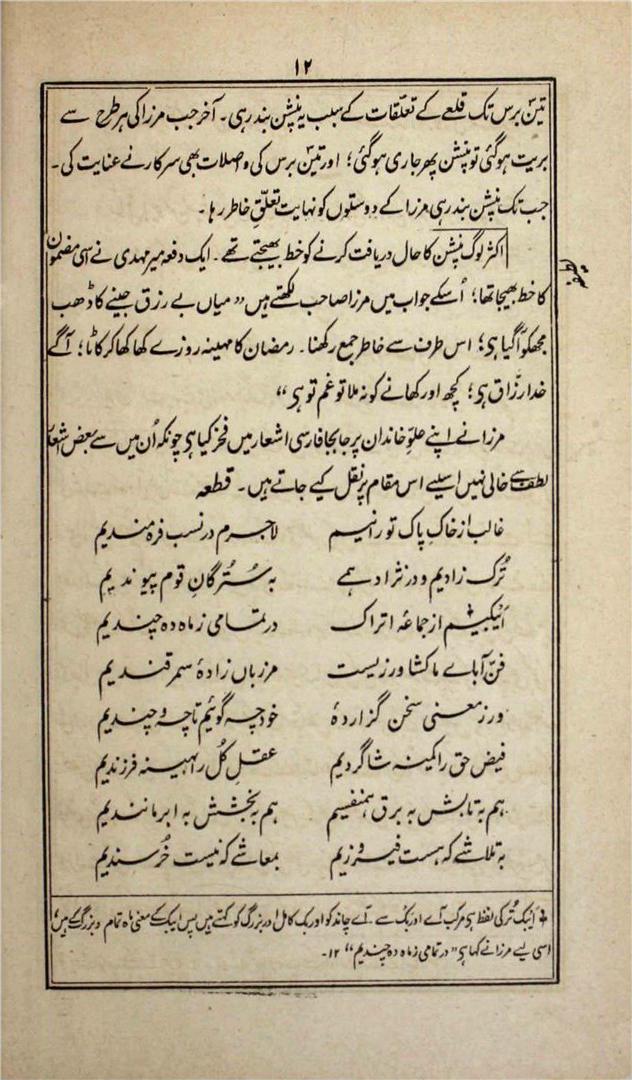 ۱۲
تین برس تک قلعے کے تعلّقات کے سبب یہ پنشن بند رہی۔ آخر جب مرزا کی ہر طرح سے
بریت ہوگئی تو پنشن پھر جاری ہوگئی؛ اور تین برس کی واصلات بھی سرکار نے عنایت کی۔
جب تک پنشن بند رہی مرزا کے دوستوں کو نہایت تعلّقِ خاطر رہا۔
لطیفہ
اکثر لوگ پنشن کا حال دریافت کرنے کو خط بھیجتے تھے۔ ایک دفعہ میر مہدی نے اسی مضمون
کا خط بھیجا تھا؛ اُسکے جواب میں مرزا صاحب لکھتے ہیں ”میاں بے رزق جینے کا ڈھب
مجھکو آگیا ہی؛ اس طرف سے خاطر جمع رکھنا۔ رمضان کا مہینہ روزے کھا کھا کر کاٹا؛ آگے
خدا رزّاق ہی؛ کچھ اور کھانے کو نہ ملا تو غم تو ہی“
مرزا نے اپنے علوِّ خاندان پر جابجا فارسی اشعار میں فخر کیا ہی چونکہ اُن میں سے بعض اشعار
لطف سے خالی نہیں اسلیے اس مقام پر نقل کیے جاتے ہیں۔ قطعہ
غالب از خاکِ پاک تورانیم لاجرم در نسب فرہ مندیم
تُرک زادیم و در نژاد ہمے بہ سُتُرگانِ قوم پیوندیم
اَیبکیم* از جماعۂ اتراک در تمامی ز ماہ دہ چندیم
فنِّ آباے ما کشاورزیست مرزباں زادۂ سمرقندیم
ور ز معنی سخن گزاردۂ خود چہ گوئیم تا چہ و چندیم
فیض حق را کمینہ شاگردیم عقلِ کُل را بہینہ فرزندیم
ہم بہ تابش بہ برق ہمنفسیم ہم بہ بخشش بہ ابر مانندیم
بہ تلاشے کہ ہست فیروزیم بمعاشے کہ نیست خُرسندیم
* اَیبک تُرکی لفظ ہی مرکب آے اور بک سے۔ آے چاند کو اور بک کامل اور بزرگ کو کہتے ہیں پس ایبک کے معنی ماہِ تمام و بزرگ کے ہیں؛
اسی لیے مرزا نے کہا ہی ”در تمامی ز ماہ دہ چندیم“ ۱۲۔